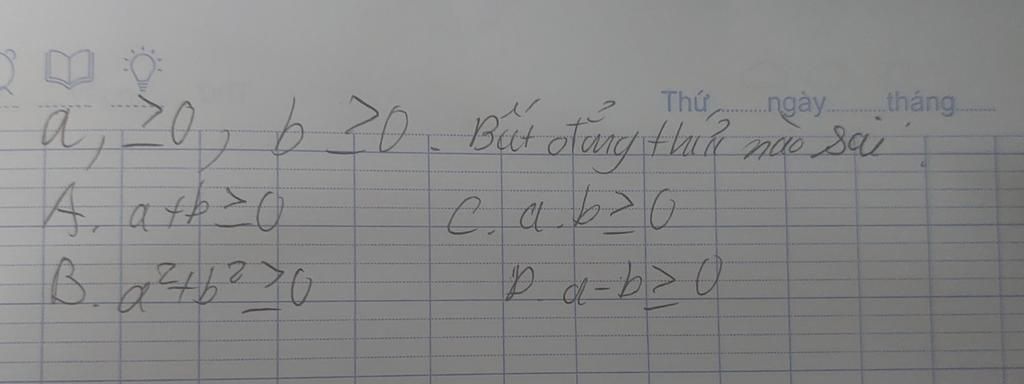 Thứ.........ngày.........tháng.........
a, ≥0, b ≥0. Bất đẳng thức nào sai
A. a+b≥0 C. a.b≥0
B. a²+b²≥0 D. a-b≥0